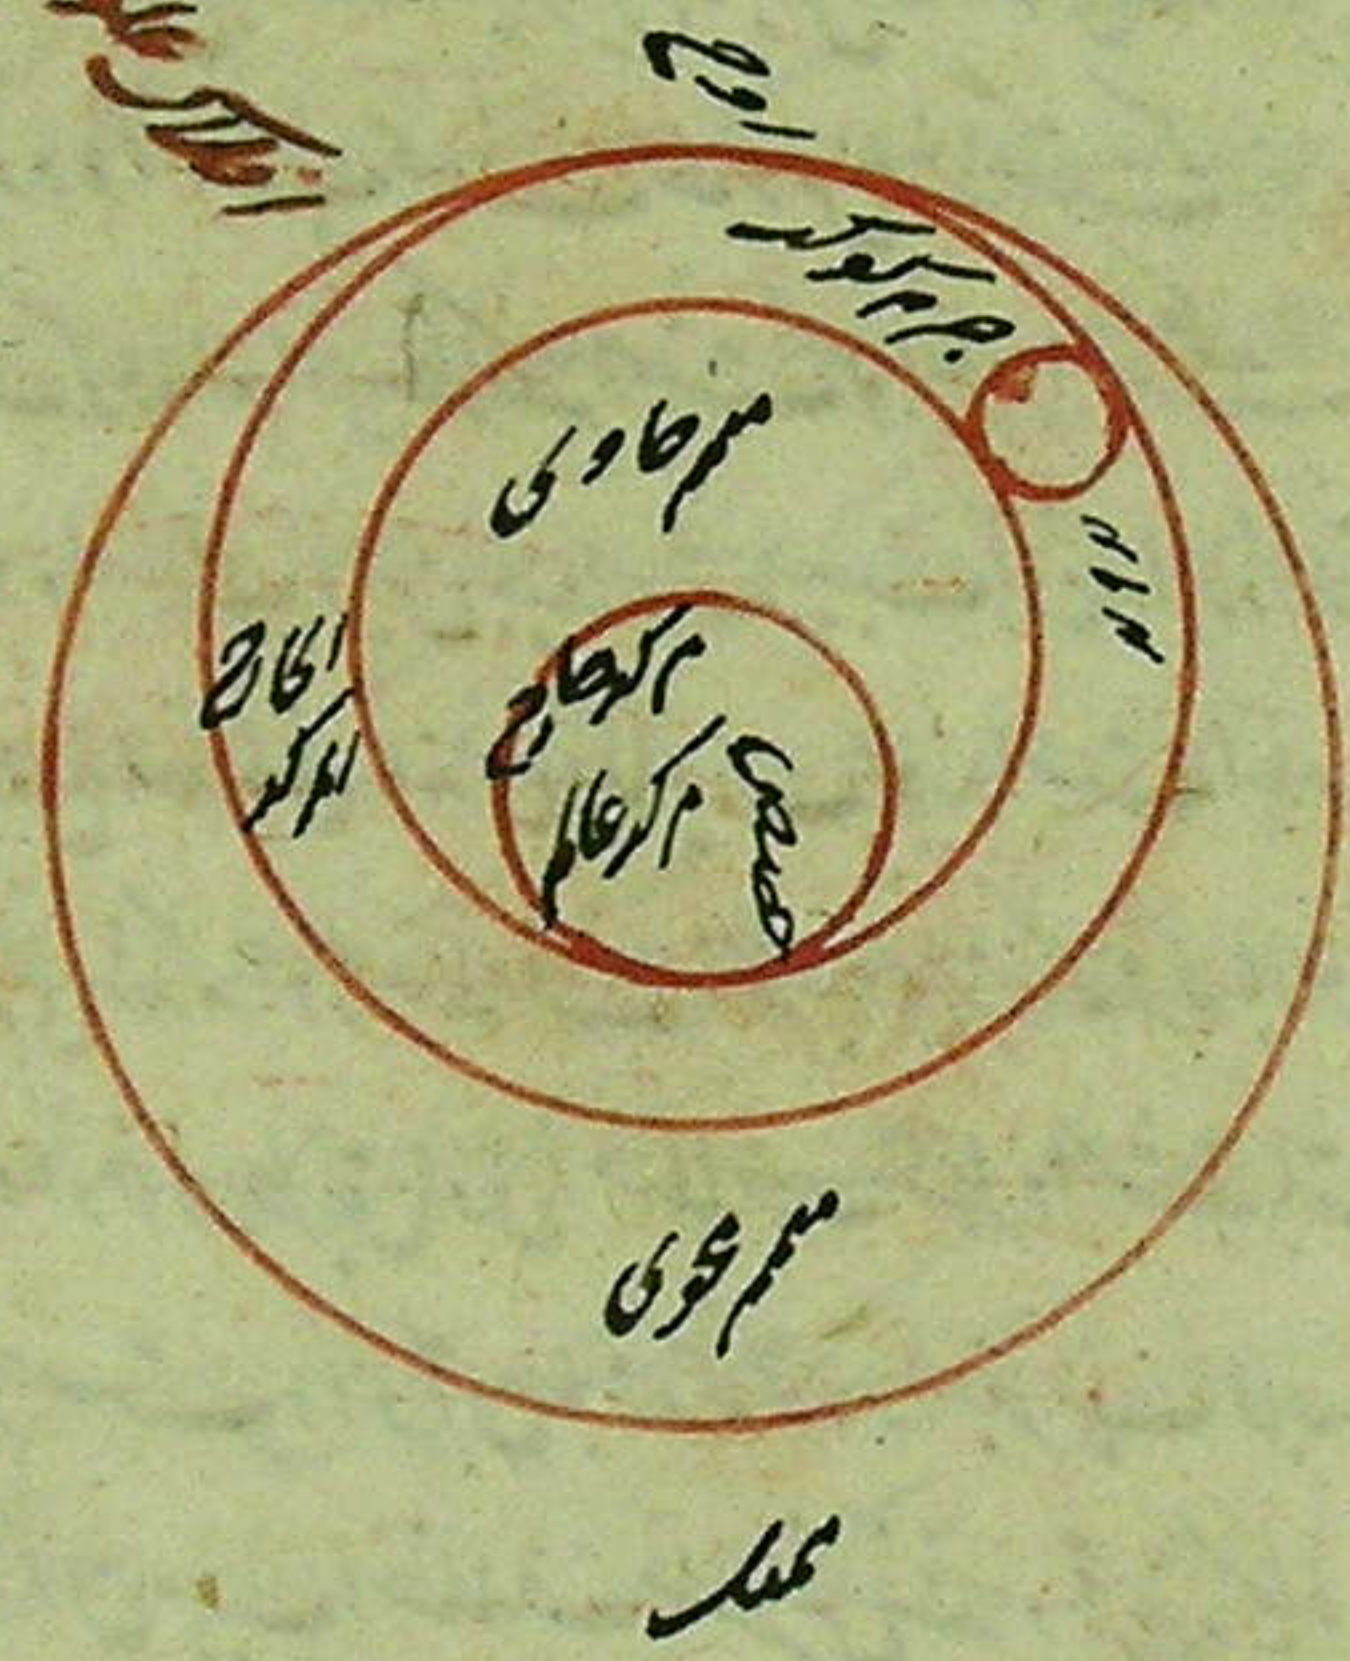 افلاك
اوج
جرم كوكب
متمم حاوى
تدوير
الخارج
المركز
مركز خارج
مركز عالم
حضيض
متمم محوى
ممثل